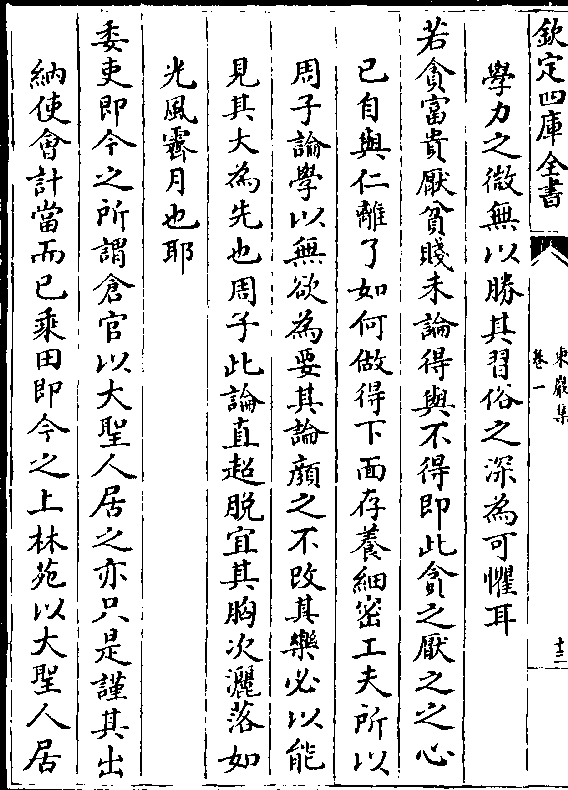 欽定四庫全書
東巖集
卷一
十三
學力之微無以勝其習俗之深為可懼耳
若貪富貴厭貧賤未論得與不得即此貪之厭之之心
已自與仁離了如何做得下面存養細密工夫所以
周子論學以無欲為要其論顔之不改其樂必以能
見其大為先也周子此論直超脫宜其胸次灑落如
光風霽月也耶
委吏即今之所謂倉官以大聖人居之亦只是謹其出
納使會計當而已乘田即今之上林苑以大聖人居